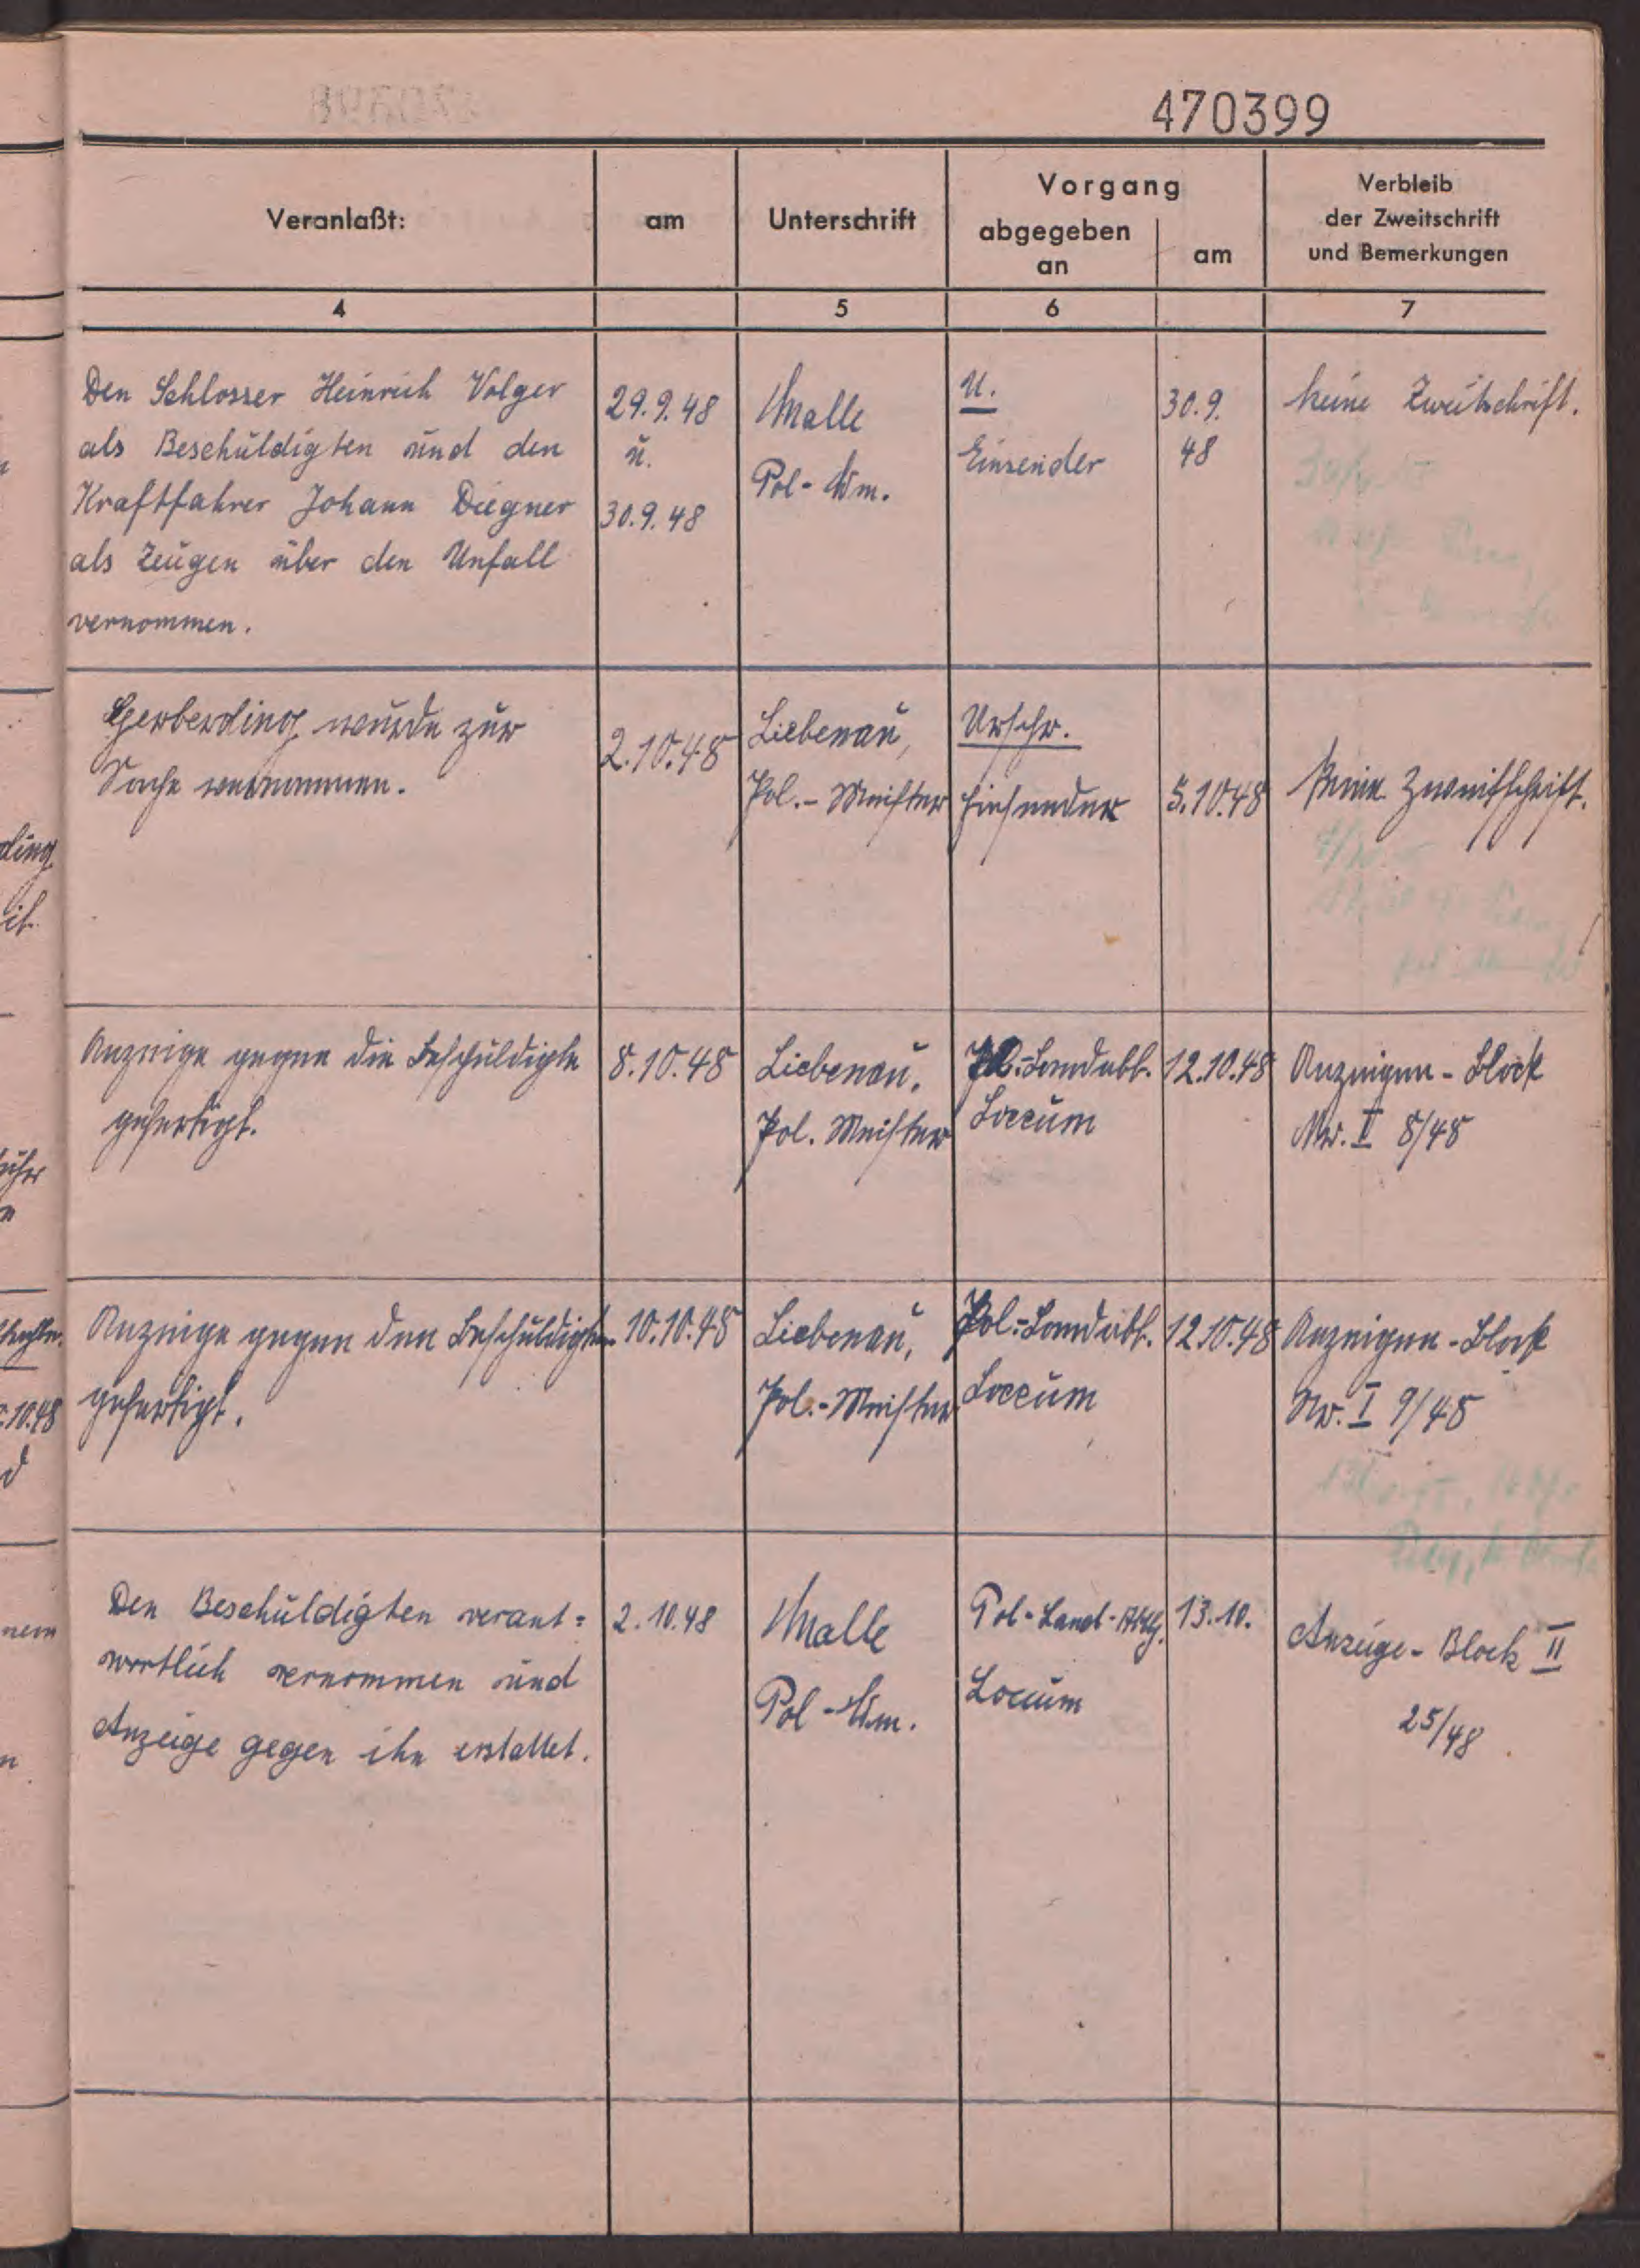 470399
Veranlaßt:
am
Unterschrift
Vorgang
abgegeben
an
am
Verbleib
der Zweitschrift
und Bemerkungen
4
5
6
7
Den Schlosser Heinrich Volger
als Beschuldigten und den
Kraftfahrer Johann Diegner
als Zeugen über den Unfall
vernommen.
29.9.48
u.
30.9.48
Malle
Pol-Wm.
U.
Einsender
30.9.
48
keine Zweitschrift.
Gerberding wurde zur
Sache vernommen.
2.10.48
Liebenau,
Pol.-Meister
Urschr.
Einsender
5.10.48
Keine Zweitschrift.
Anzeige gegen die Beschuldigte
gefertigt.
8.10.48
Liebenau,
Pol. Meister
Pol.-Landabt.
Loccum
12.10.48
Anzeigen-Block
Nr. II 8/48
Anzeige gegen den Beschuldigten
gefertigt.
10.10.48
Liebenau,
Pol.-Meister
Pol.-Landabt.
Loccum
12.10.48
Anzeigen-Block
Nr. I 9/48
Den Beschuldigten verant=
wortlich vernommen und
Anzeige gegen ihn erstattet.
2.10.48
Malle
Pol-Wm.
Pol-Land-Abtlg.
Loccum
13.10.
Anzeige-Block II
25/48